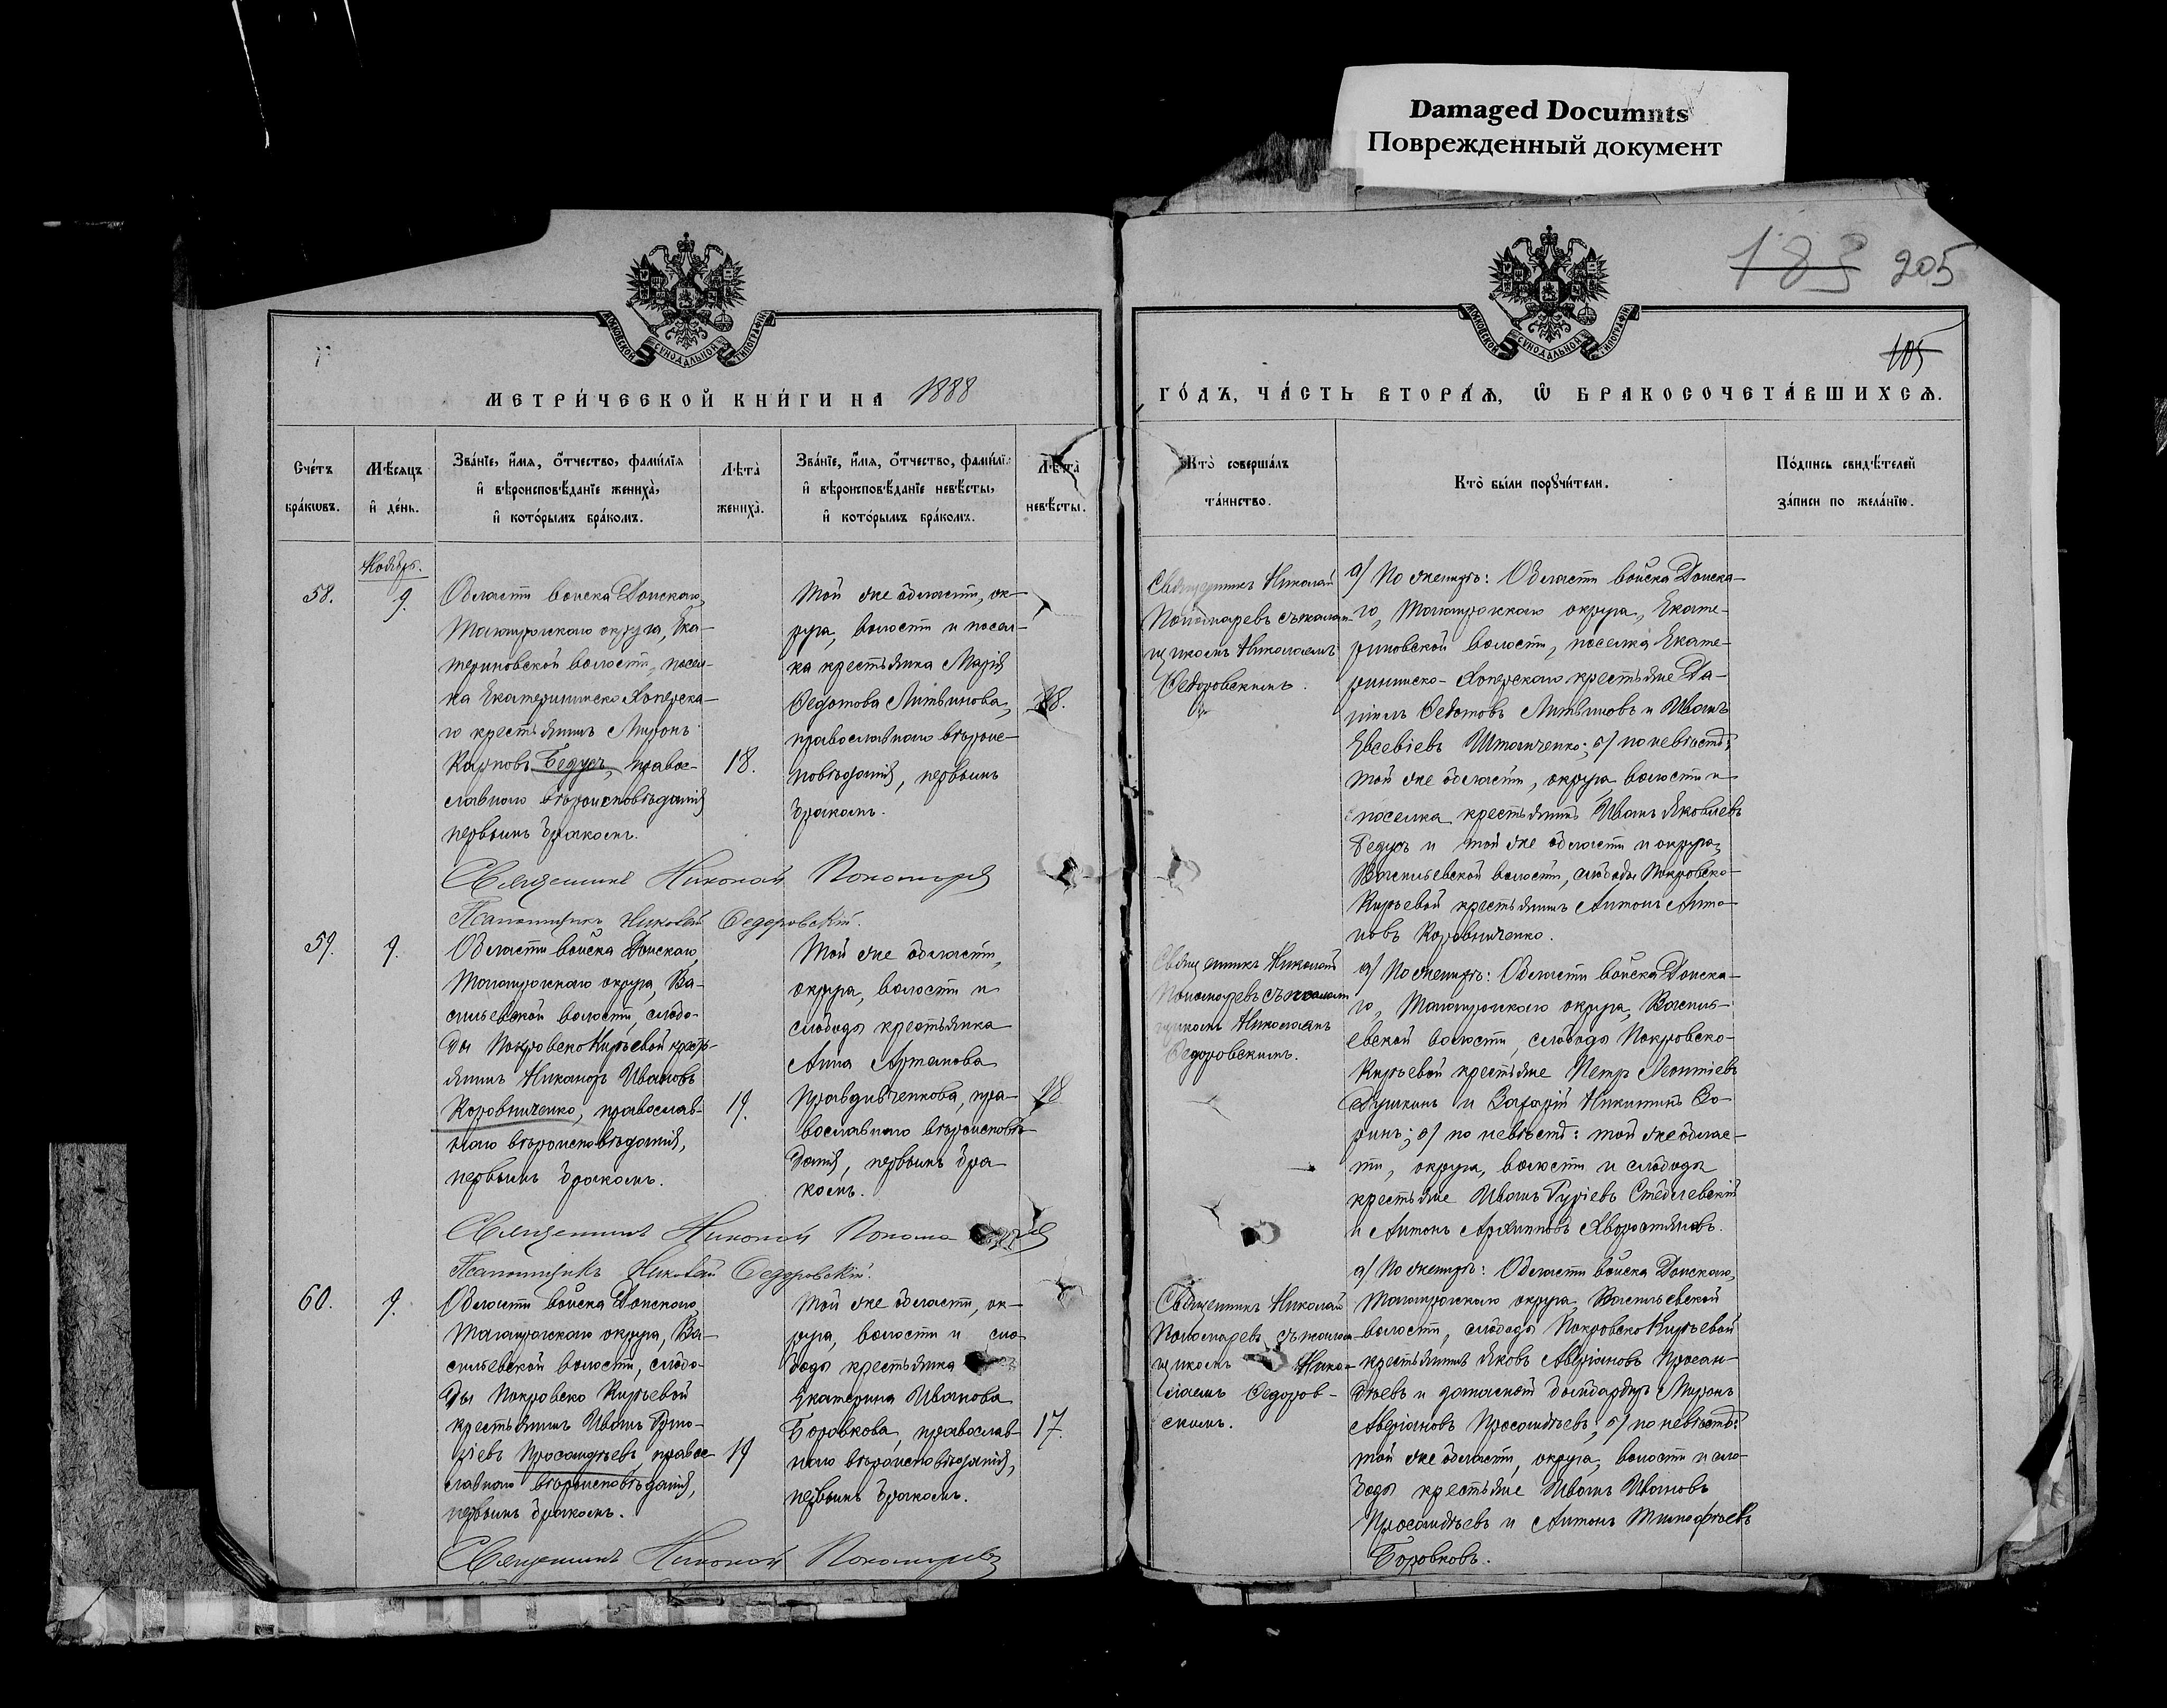 Damaged Documnts
Поврежденный документ
183 205
105
МОСКОВСКОЙ СѴНОДАЛЬНОЙ ТИПОГРАФІИ
МОСКОВСКОЙ СѴНОДАЛЬНОЙ ТИПОГРАФІИ
МЕТРИ́ЧЕСКОЙ КНИ́ГИ НА 1888
ГО́ДЪ, ЧА́СТЬ ВТОРА́Ѧ, Ѽ БРАКОСОЧЕТА́ВШИХСѦ.
Сче́тъ
бра́кωвъ.
Мѣ́сяцъ
и҆ де́нь.
Зва́нїе, и҆́мя, ѻ҆́тчество, фами́лїя
и҆ вѣроисповѣ́данїе жениха̀,
и҆ кото́рымъ бра́комъ.
Лѣта̀
жениха̀.
Зва́нїе, и҆́мя, ѻ҆́тчество, фами́лїя
и҆ вѣроисповѣ́данїе невѣ́сты,
и҆ кото́рымъ бра́комъ.
Лѣта̀
невѣ́сты.
Кто̀ соверша́лъ
та́инство.
Кто̀ бы́ли порꙋчи́тели.
По́дпись свидѣ́телей
за́писи по жела́нїю.
Ноябрь.
58.
9.
Области войска Донскаго,
Таганрогскаго округа, Ека-
териновской волости, посел-
ка Екатерининско Хоперска-
го крестьянинъ Миронъ
Карповъ Бедусъ, правос-
славнаго вѣроисповѣданія
первымъ бракомъ.
18.
Той же области, ок-
руга, волости и посел-
ка крестьянка Марія
Федотова Литвинова,
православнаго вѣроис-
повѣданія, первымъ
бракомъ.
18.
Священникъ Николай
Пономаревъ съ псалом-
щикомъ Николаемъ
Федоровскимъ.
а) По женихѣ: Области войска Донска-
го, Таганрогскаго округа, Екате-
риновской волости, поселка Екате-
рининско-Хоперскаго крестьяне Да-
ніилъ Федотовъ Литвиновъ и Иванъ
Евсевіевъ Штанченко; б) по невѣстѣ:
той же области, округа, волости и
поселка крестьянинъ Иванъ Яковлевъ
Бедусъ и той же области и округа,
Васильевской волости, слободы Покровско-
Кирѣевой крестьянинъ Антонъ Анто-
новъ Коровниченко.
Священникъ Николай Пономаревъ
Псаломщикъ Николай Федоровскій.
59.
9.
Области войска Донскаго,
Таганрогскаго округа, Ва-
сильевской волости, слобо-
ды Покровско Кирѣевой кресть-
янинъ Никаноръ Ивановъ
Коровниченко, православ-
наго вѣроисповѣданія,
первымъ бракомъ.
19.
Той же области,
округа, волости и
слободы крестьянка
Анна Артемова
Правдивченкова, пра-
вославнаго вѣроисповѣ-
данія, первымъ бра-
комъ.
18
Священникъ Николай
Пономаревъ съ псалом-
щикомъ Николаемъ
Федоровскимъ.
а) По женихѣ: Области войска Донска-
го, Таганрогскаго округа, Василь-
евской волости, слободы Покровско-
Кирѣевой крестьяне Петръ Леонтіевъ
и Захарій Никитинъ
б) по невѣстѣ: той же облас-
ти, округа, волости и слободы
крестьяне Иванъ Гуріевъ
и Антонъ Архиповъ Хворостяновъ.
Священникъ Николай Пономаревъ
Псаломщикъ Николай Федоровскій.
60.
9.
Области войска Донскаго,
Таганрогскаго округа, Ва-
сильевской волости, слобо-
ды Покровско Кирѣевой
крестьянинъ Иванъ Григо-
рьевъ Просандѣевъ, правос-
славнаго вѣроисповѣданія,
первымъ бракомъ.
19
Той же области, ок-
руга, волости и сло-
боды крестьянка
Екатерина Иванова
Боровкова, православ-
наго вѣроисповѣданія,
первымъ бракомъ.
17.
Священникъ Николай
Пономаревъ съ псалом-
щикомъ Нико-
лаемъ Федоров-
скимъ.
а) По женихѣ: Области войска Донскаго,
Таганрогскаго округа, Васильевской
волости, слободы Покровско Кирѣевой
крестьянинъ Яковъ Аверіановъ Просан-
дѣевъ и запасной бомбардиръ Миронъ
Аверіановъ Просандѣевъ; б) по невѣстѣ:
той же области, округа, волости и сло-
боды крестьяне Иванъ Ивановъ
Просандѣевъ и Антонъ Тимофѣевъ
Боровковъ.
Священникъ Николай Пономаревъ